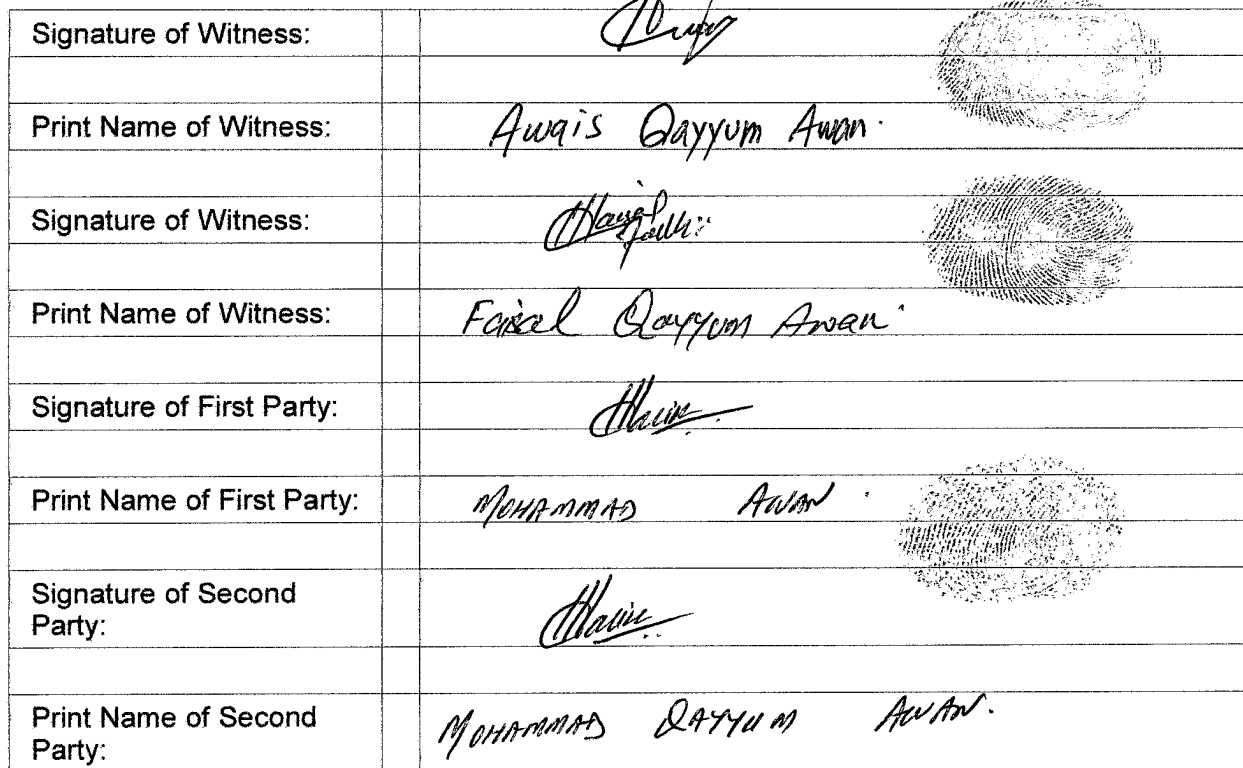 Signature of Witness:
Print Name of Witness: Awais Qayyum Awan.
Signature of Witness:
Print Name of Witness: Faisal Qayyum Awan.
Signature of First Party:
Print Name of First Party: MOHAMMAD AWAN.
Signature of Second
Party:
Print Name of Second
Party: MOHAMMAD QAYYUM AWAN.